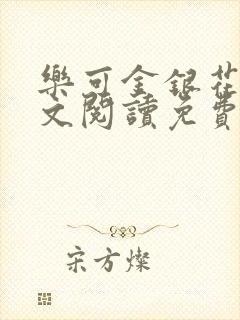 樂可金銀花
文閱讀免費
宋方燦